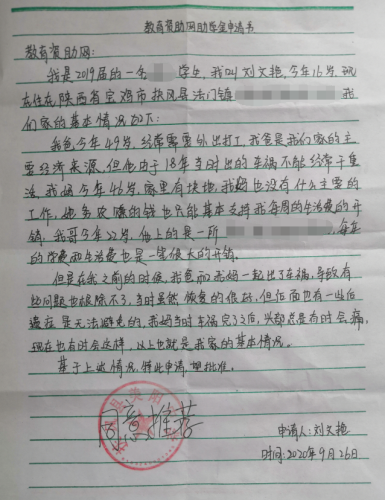 教育资助网助学金申请书
教育资助网:
我是2019届的一名 学生,我叫刘文艳,今年16岁,现
在住在陕西省宝鸡市扶风县法门镇 我
们家的基本情况如下:
我爸今年49岁,经常需要外出打工,我爸是我们家的主
要经济来源,但他由于18年当时出的车祸不能经常干重
活,我妈今年46岁,家里有块地,我妈也没有什么主要的
工作,她务农赚的钱也只能基本支持我每周的生活费的开
销,我哥今年22岁,他上的是一所 ,每年
的学费和生活费也是一笔很大的开销。
但是在我之前的时候,我爸和我妈一起出了车祸,导致有
些问题也根除不了,当时虽然恢复的很好,但后面也有一些后
遗症是无法避免的,我妈当时车祸完了之后,头部总是有时会痛,
现在也有时会这样,以上也就是我家的基本情况。
基于上述情况,特此申请,望批准。
同意推荐
申请人:刘文艳
时间:2020年9月26日